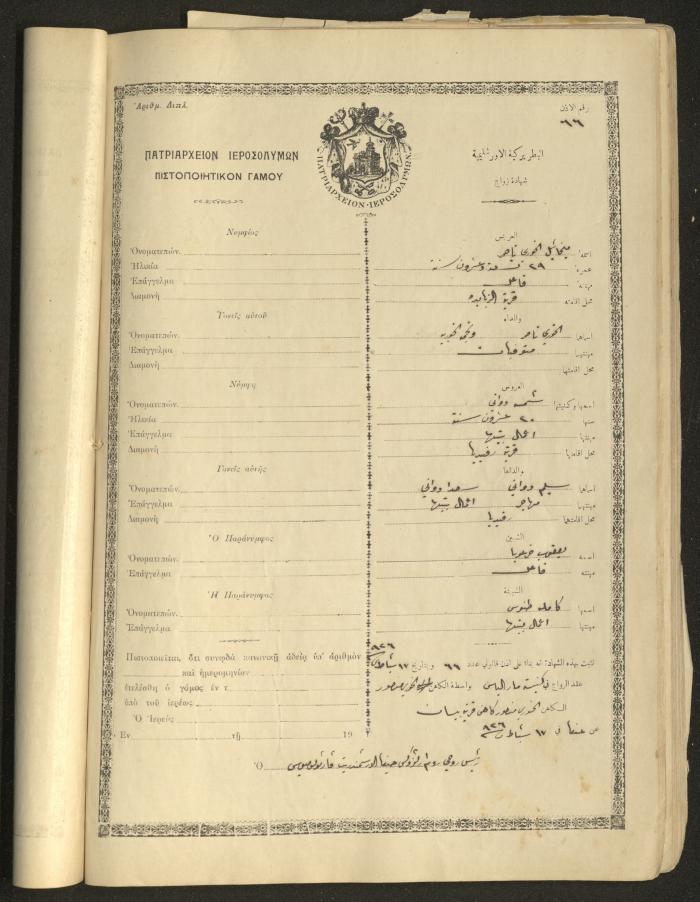 Ἀριθμ. Διπλ.
رقم الاذن
٦٦
ΠΑΤΡΙΑΡΧΕΙΟΝ ΙΕΡΟΣΟΛΥΜΩΝ
ΠΙΣΤΟΠΟΙΗΤΙΚΟΝ ΓΑΜΟΥ
ΠΑΤΡΙΑΡΧΕΙΟΝ·ΙΕΡΟΣΟΛΥΜΩΝ
البطريركية الاورشليمية
شهادة زواج
Νυμφίος
Ὀνοματεπών.
Ἡλικία
Ἐπάγγελμα
Διαμονή
Γονεῖς αὐτοῦ
Ὀνοματεπών.
Ἐπάγγελμα
Διαμονή
Νύμφη
Ὀνοματεπών.
Ἡλικία
Ἐπάγγελμα
Διαμονή
Γονεῖς αὐτῆς
Ὀνοματεπών.
Ἐπάγγελμα
Διαμονή
Ὁ Παράνυμφος
Ὀνοματεπών.
Ἐπάγγελμα
Ἡ Παράνυμφος
Ὀνοματεπών.
Ἐπάγγελμα
Πιστοποιεῖται, ὅτι συνῳδὰ κανονικῇ ἀδείᾳ ὑπ' ἀριθμὸν
καὶ ἡμερομηνίαν
ἐτελέσθη ὁ γάμος ἐν τ
ὑπὸ τοῦ ἱερέως
Ὁ Ἱερεὺς
Ἐν τῇ 19
العريس
اسمه ميخائيل الخوري
عمره ٢٩ تسعة وعشرون سنة
مهنته فاعل
محل اقامته قرية الزبابده
والداه
اسماها الخوري
مهنتهما متوفيان
محل اقامتهما
العروس
اسمها وكنيتها
سنها ٢٠ عشرون سنة
مهنتها اعمال بيتها
محل اقامتها قرية رفيديا
والداها
اسماها سليم
مهنتهما اعمال بيتها
محل اقامتهما رفيديا
الشبين
اسمه يعقوب
مهنته فاعل
الشبينة
اسمها كامله طنوس
مهنتها اعمال بيتها
تثبت بهذه الشهادة انه بناء على اذن قانوني عدد ٦٦ وبتاريخ ١٧ شباط ٩٢٦
عقد الزواج في كنيسة مار الياس بواسطة الكاهن الخوري منصور
الكاهن الخوري منصور كاهن قرية بيسان
عن حيفا في ١٧ شباط ٩٢٦
Ὁ رئيس روحي روم ارثوذكس حيفا الارشمندريت